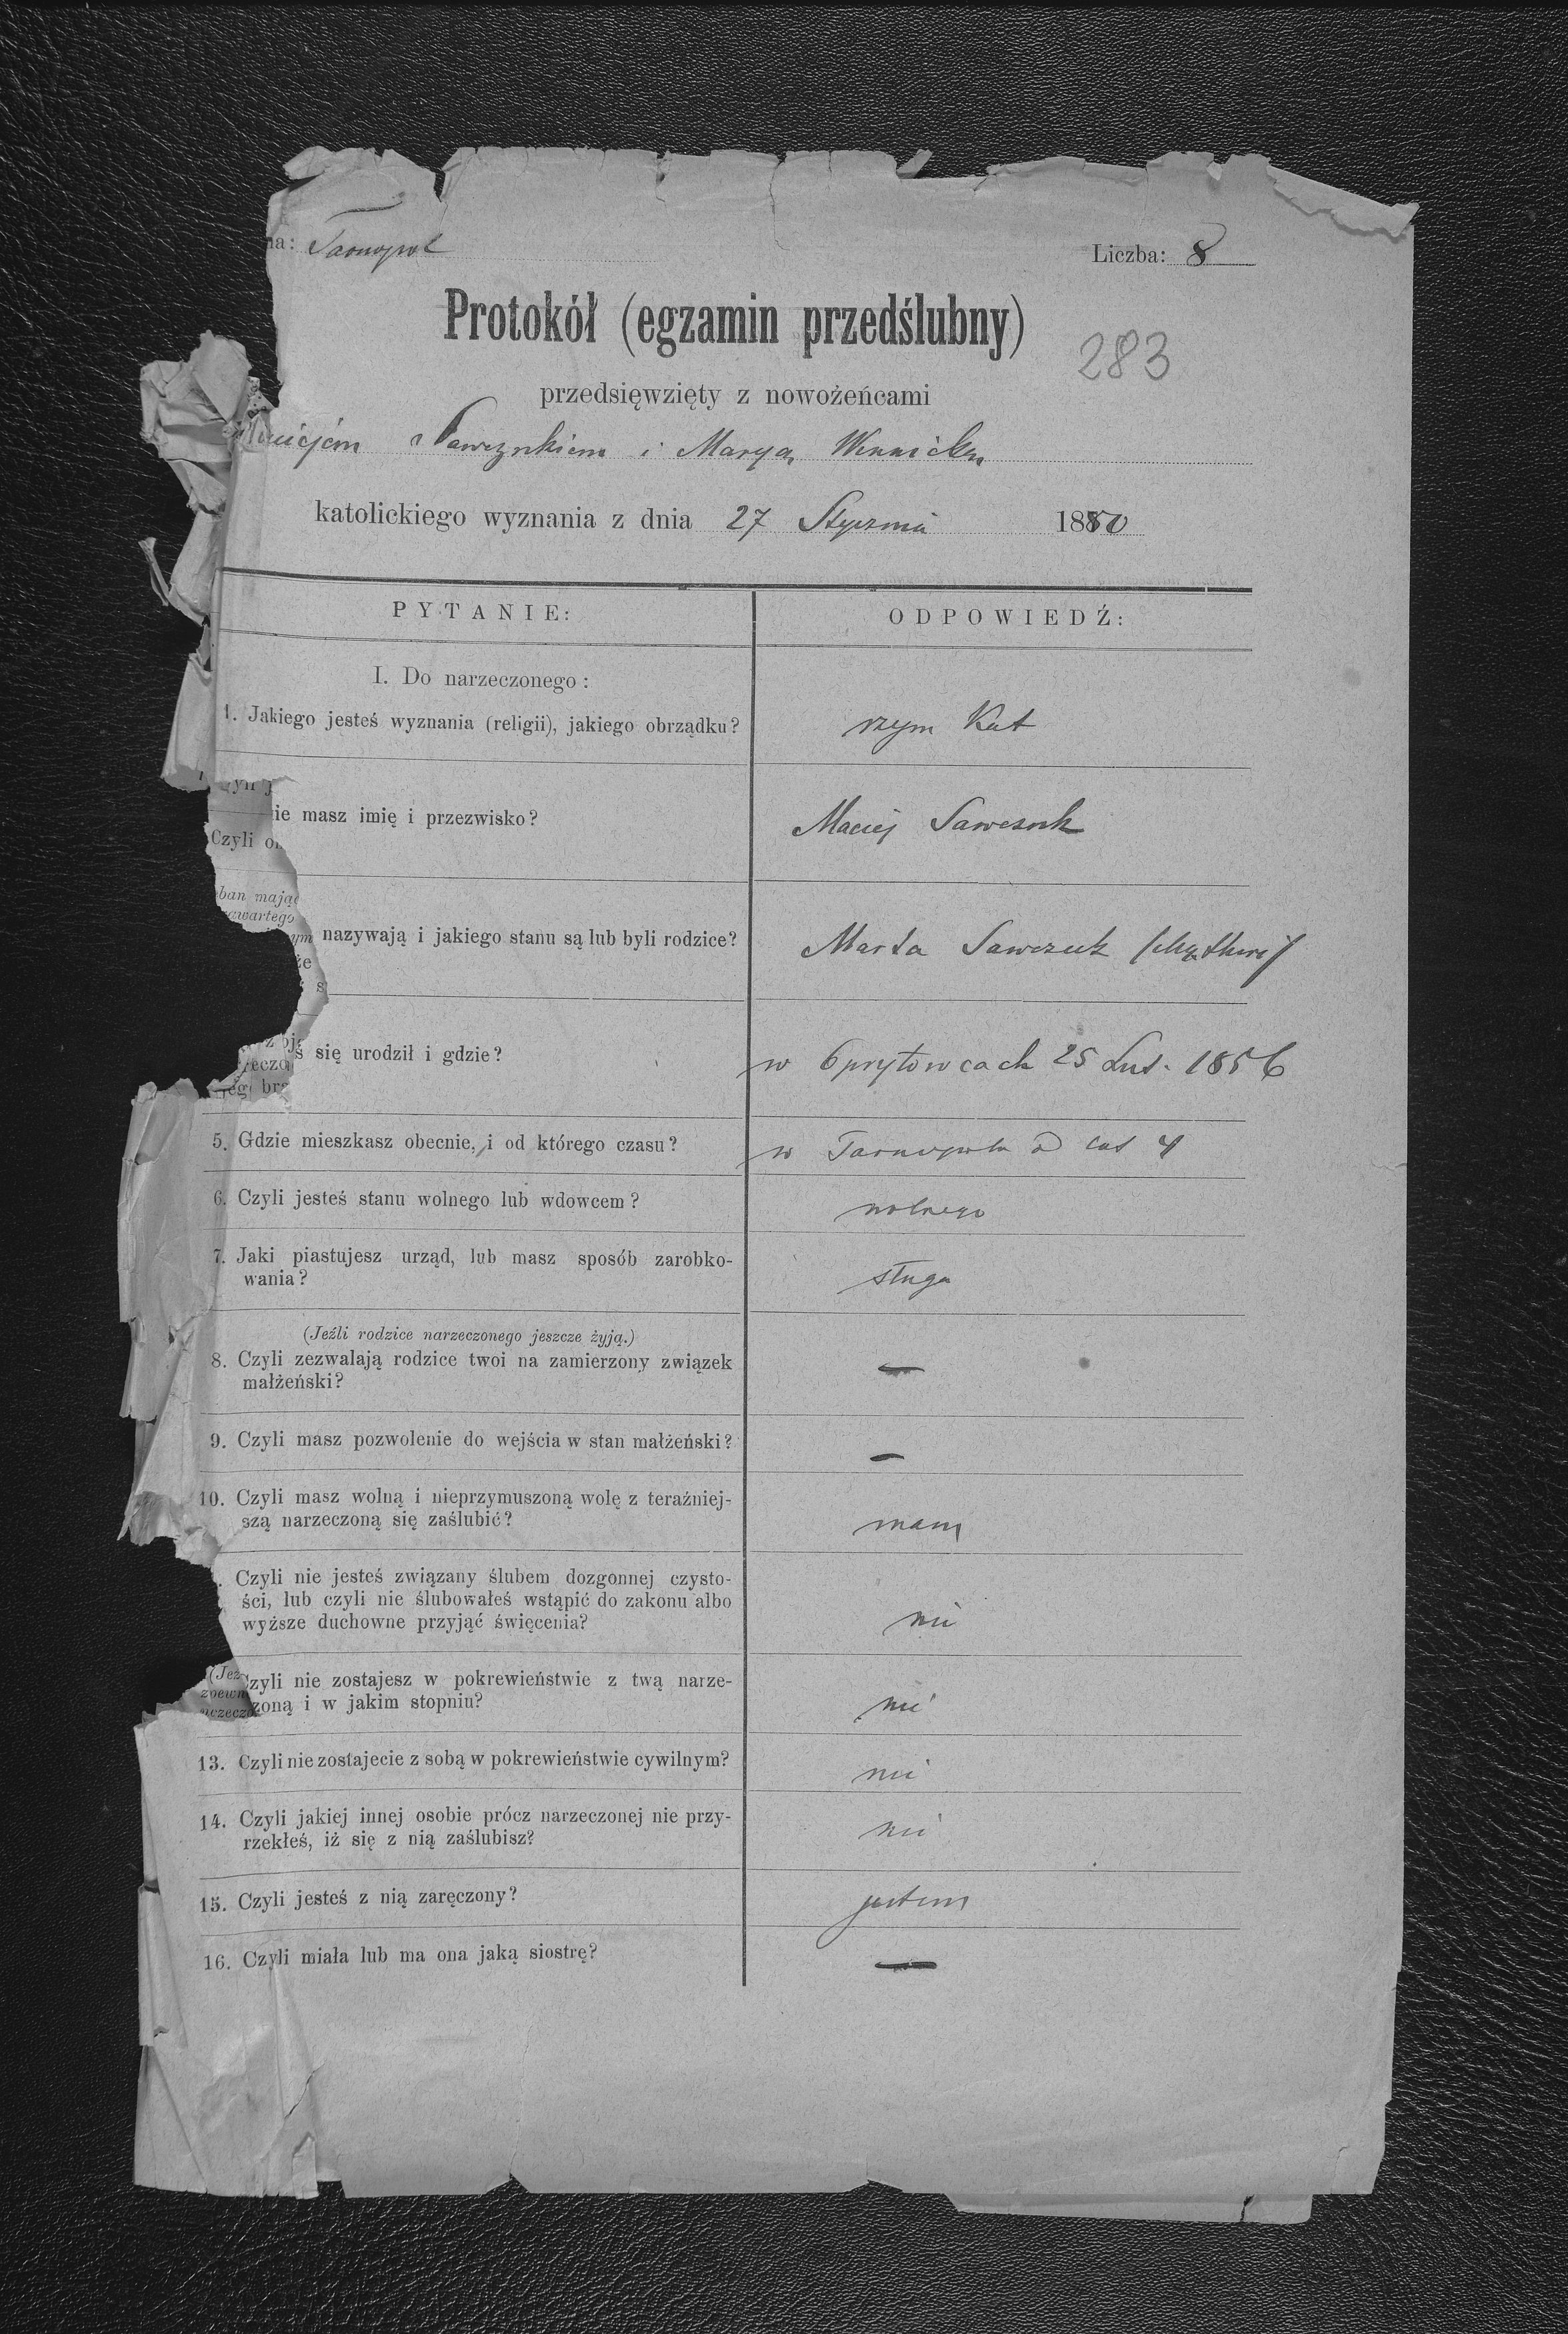 na: Tarnopol
Liczba: 8
Protokół (egzamin przedślubny)
283
przedsięwzięty z nowożeńcami
Maciejem Sawczukiem i Maryą Winnicką
katolickiego wyznania z dnia 27 Stycznia 1880
PYTANIE:
ODPOWIEDŹ:
I. Do narzeczonego:
1. Jakiego jesteś wyznania (religii), jakiego obrządku?
rzym Kat
ie masz imię i przezwisko?
Maciej Sawczuk
Czyli
ban mając
czwartego
nazywają i jakiego stanu są lub byli rodzice?
Marta Sawczuk
ś się urodził i gdzie?
w Opryłowcach 25 Lut. 1856
5. Gdzie mieszkasz obecnie, i od którego czasu?
w Tarnopolu od lat 4
6. Czyli jesteś stanu wolnego lub wdowcem?
wolnego
7. Jaki piastujesz urząd, lub masz sposób zarobko-
wania?
sługa
(Jeźli rodzice narzeczonego jeszcze żyją.)
8. Czyli zezwalają rodzice twoi na zamierzony związek
małżeński?
—
9. Czyli masz pozwolenie do wejścia w stan małżeński?
—
10. Czyli masz wolną i nieprzymuszoną wolę z teraźniej-
szą narzeczoną się zaślubić?
mam
. Czyli nie jesteś związany ślubem dozgonnej czysto-
ści, lub czyli nie ślubowałeś wstąpić do zakonu albo
wyższe duchowne przyjąć święcenia?
nie
(Jeź
zyli nie zostajesz w pokrewieństwie z twą narze-
zoną i w jakim stopniu?
nie
13. Czyli nie zostajecie z sobą w pokrewieństwie cywilnym?
nie
14. Czyli jakiej innej osobie prócz narzeczonej nie przy-
rzekłeś, iż się z nią zaślubisz?
nie
15. Czyli jesteś z nią zaręczony?
jestem
16. Czyli miała lub ma ona jaką siostrę?
—